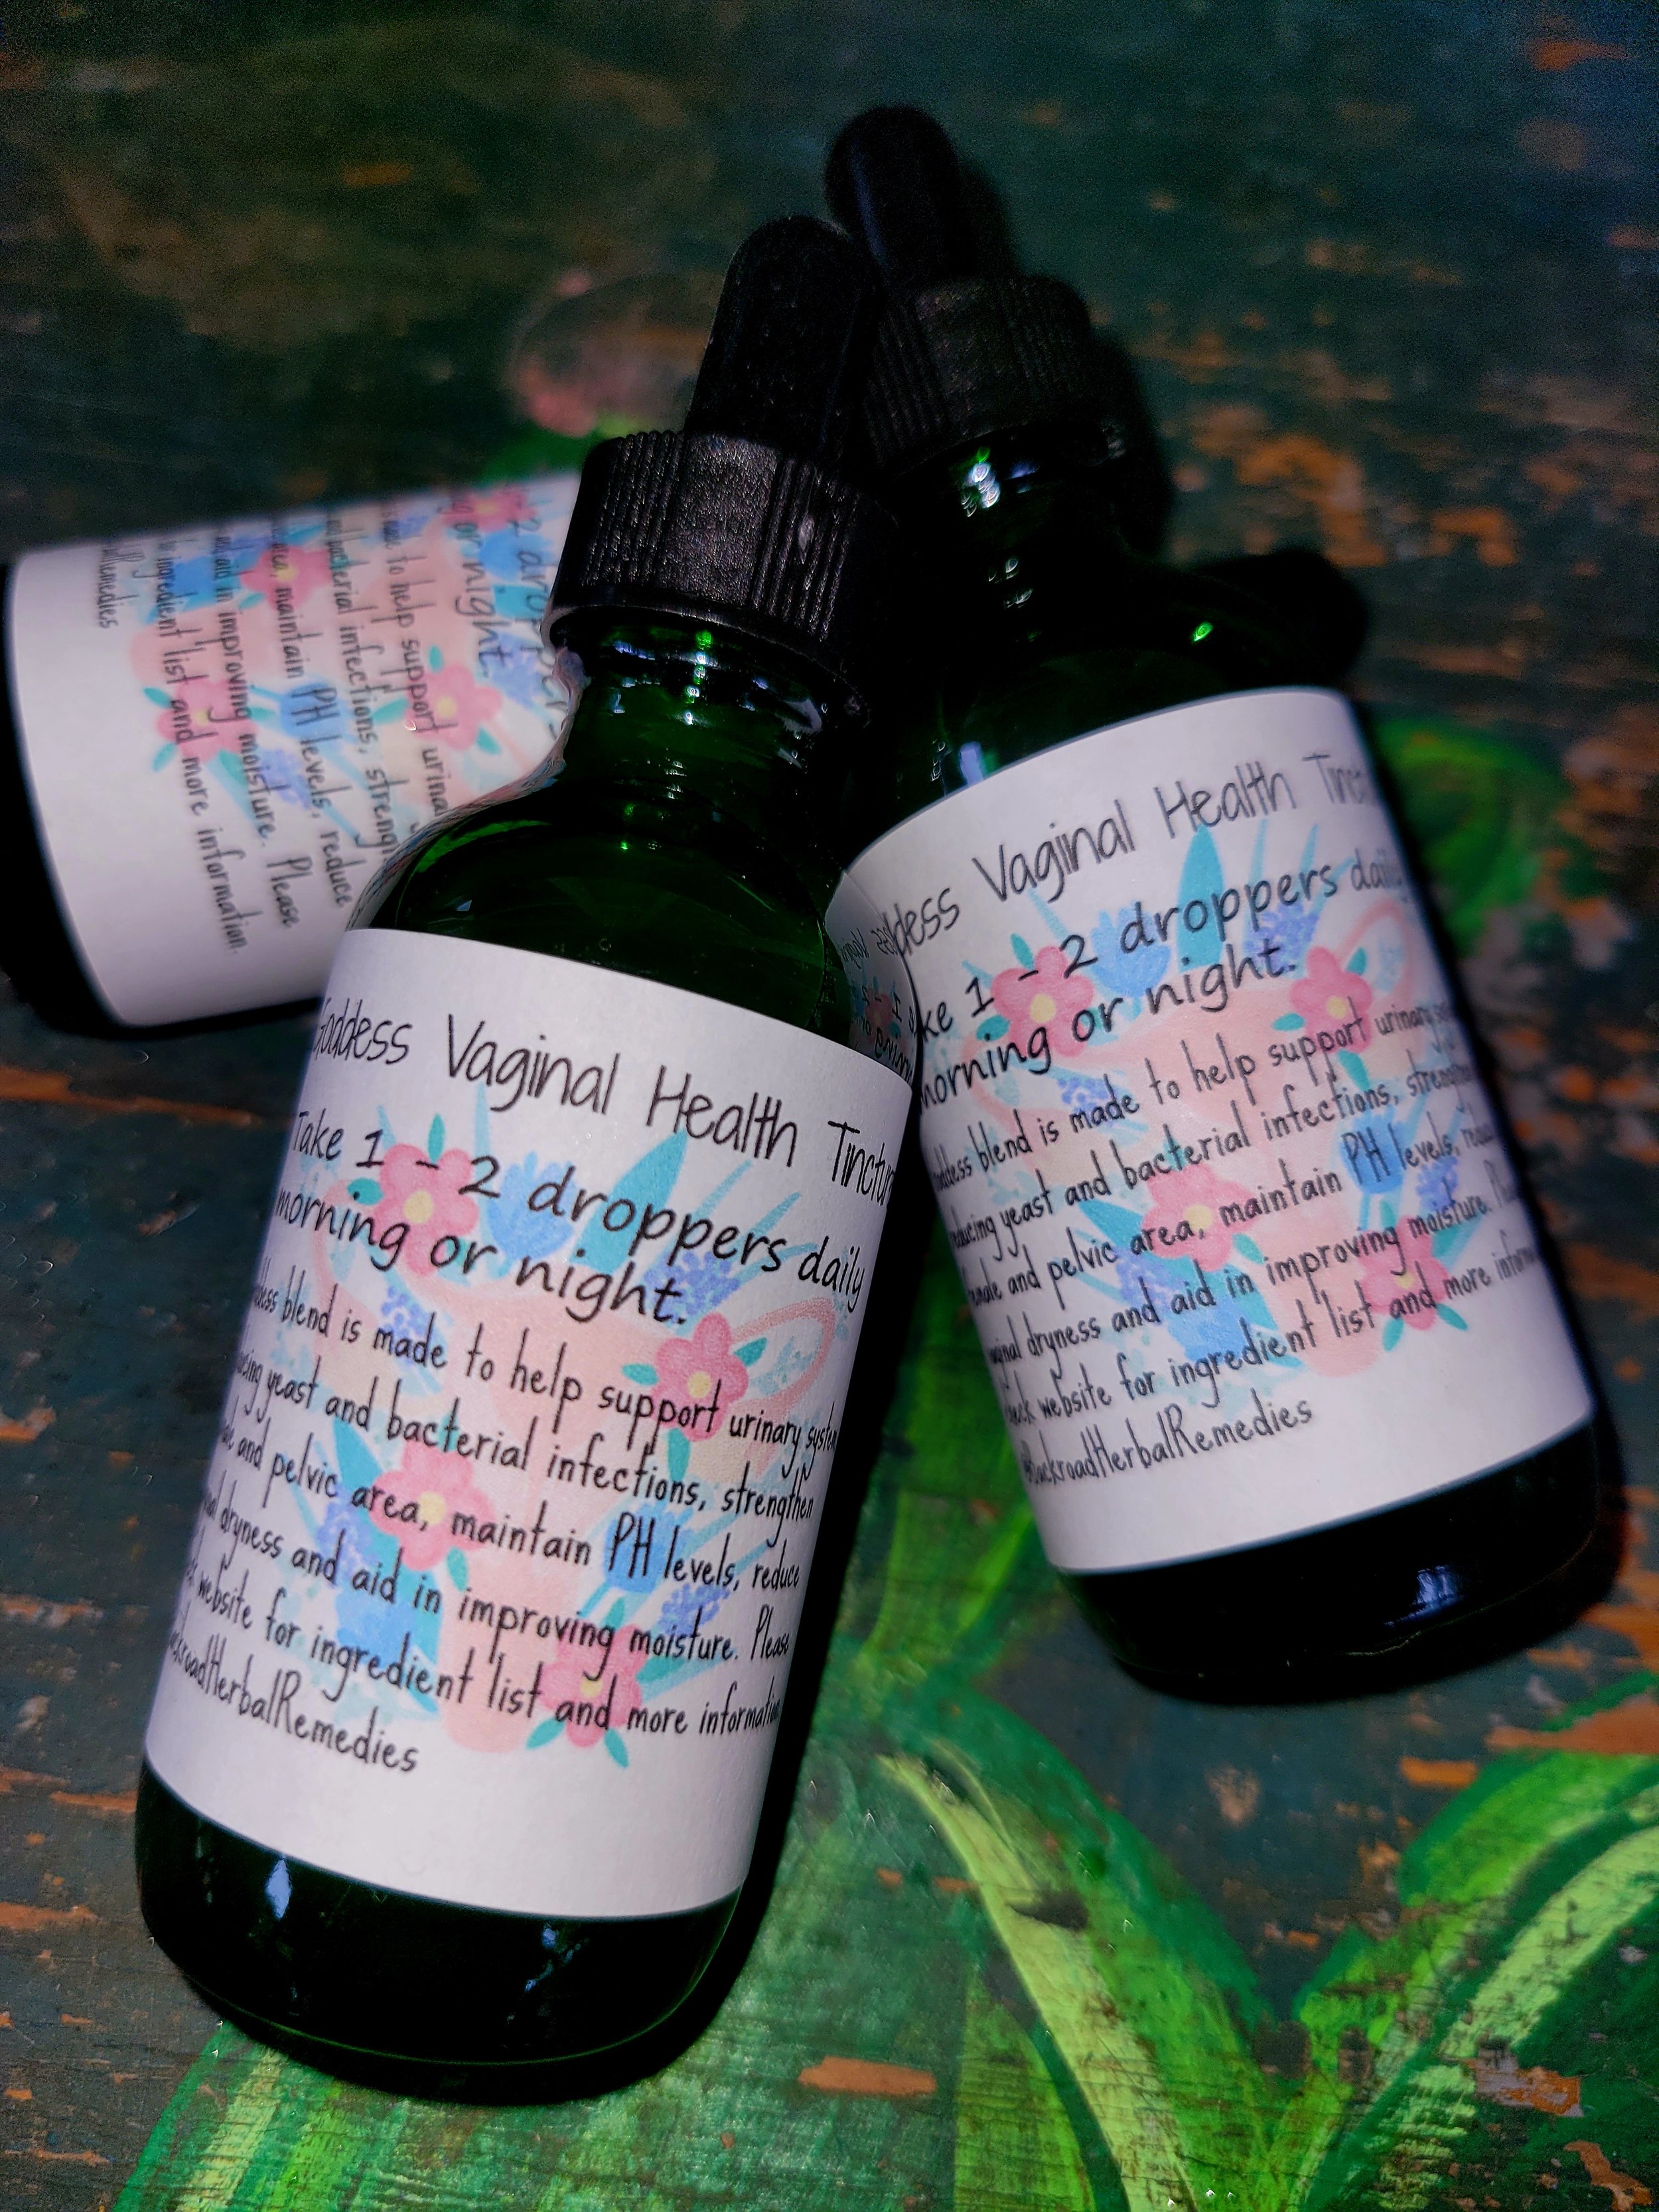 Goddess Vaginal Health Tincture
Take 1 - 2 droppers daily
morning or night.
blend is made to help support urinary system
yeast and bacterial infections, strengthen
and pelvic area, maintain PH levels, reduce
dryness and aid in improving moisture. Please
website for ingredient list and more information.
Vaginal Health
1 - 2 droppers daily
morning or night.
blend is made to help support urinary
yeast and bacterial infections,
and pelvic area, maintain PH levels,
dryness and aid in improving moisture.
check website for ingredient list and more
@BackroadHerbalRemedies
2
or night.
to help support
bacterial infections,
area, maintain PH levels, reduce
aid in improving moisture. Please
ingredient list and more information.